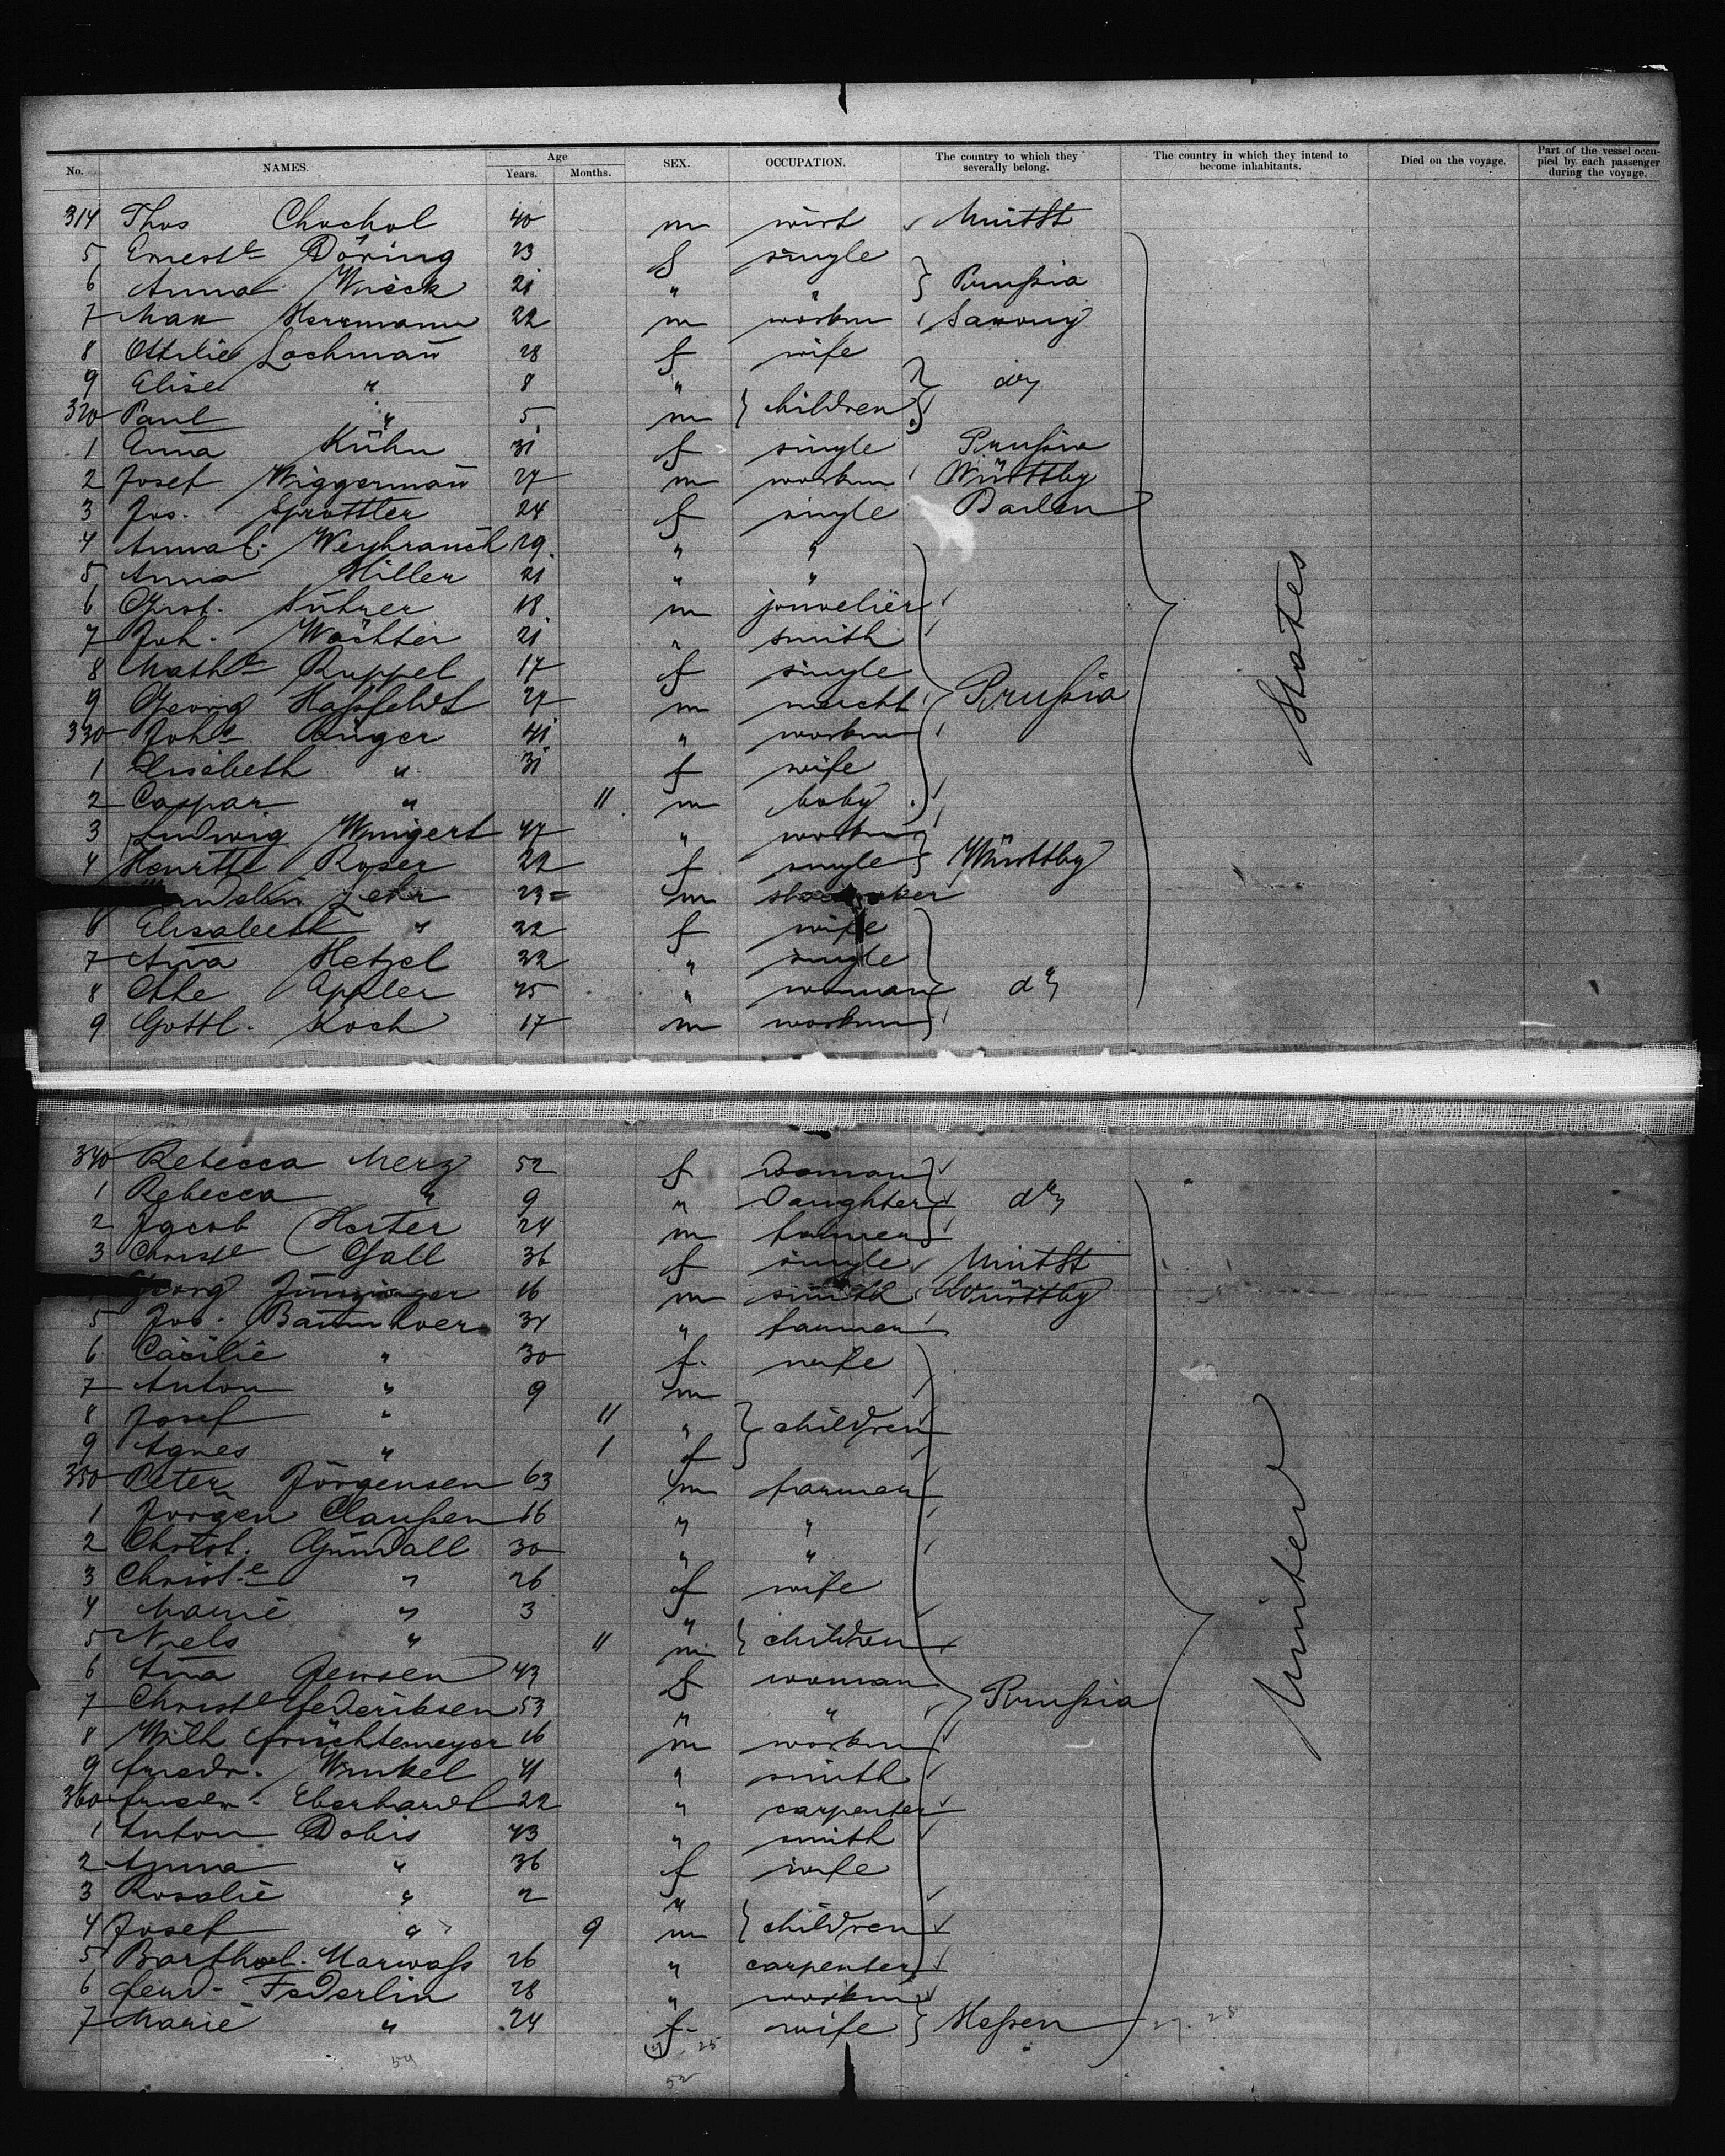 No. NAMES. Age Years. Months. SEX. OCCUPATION. The country to which they severally belong. The country in which they intend to become inhabitants. Died on the voyage. Part of the vessel occupied by each passenger during the voyage.
314 Thos Chochol 40 m wirt UnitSt
5 Ernest e Döring 23 f single
6 Anna Wieck 21 " " Prußia
7 Max Herrmann 22 m workm Saxony
8 Ottilie Lochmañ 28 f wife
9 Elise " 8 " children do
320 Paul " 5 m
1 Anna Kühn 31 f single Prußia
2 Josef Wiggermañ 27 m workm Württbg
3 Jos. Sprottler 24 f single Baden
4 Anna C. Weyhrauch 29 " "
5 Anna Hiller 21 " "
6 18 m jouvelier
7 Joh. Wächter 21 " smith
8 Math e Ruppel 17 f single
9 Georg Haßfeldt 27 m mercht Prußia
330 Johs 41 " workm
1 Elisabeth " 31 f wife
2 Caspar " 11 m baby
3 Ludwig Wingert 47 " workm
4 Henrtte Roser 22 f single Württbg
23 m
6 Elisabeth " 22 f wife
7 Aña Hetzel 22 " single
8 45 " woman do
9 Gottl. Koch 17 m workm
States
340 Rebecca Merz 52 f Woman
1 Rebecca " 9 " Daughter do
2 Jacob Herter 24 m farmer
3 Christ e Gall 36 f single UnitSt
Georg 16 m smith Württbg
5 Jos. 34 " farmer
6 Cäcilie " 30 f. wife
7 Anton " 9 m
8 Josef " 11 " children
9 Agnes " 1 f
350 Peter Jörgensen 63 m farmer
1 Jörgen Claußen 16 " "
2 Christ. Gündall 30 " "
3 Christ. e " 26 f wife
4 Marie " 3 "
5 Niels " 11 m children
6 Aña Jensen 43 f woman
7 Christ e 53 " " Prußia
8 Wilh Früchtemeyer 16 m workm
9 Friedr. Winkel 41 " smith
360 Friedr. Eberhardt 22 " carpenter
1 Anton Dobis 43 " smith
2 Anna " 36 f wife
3 Rosalie " 2 "
4 Josef " 9 m children
5 Barthol. Marwaß 26 " carpenter
6 Ferd. Federlin 28 " workm
7 Marie " 24 f wife Heßen
United
27. 25
54
52